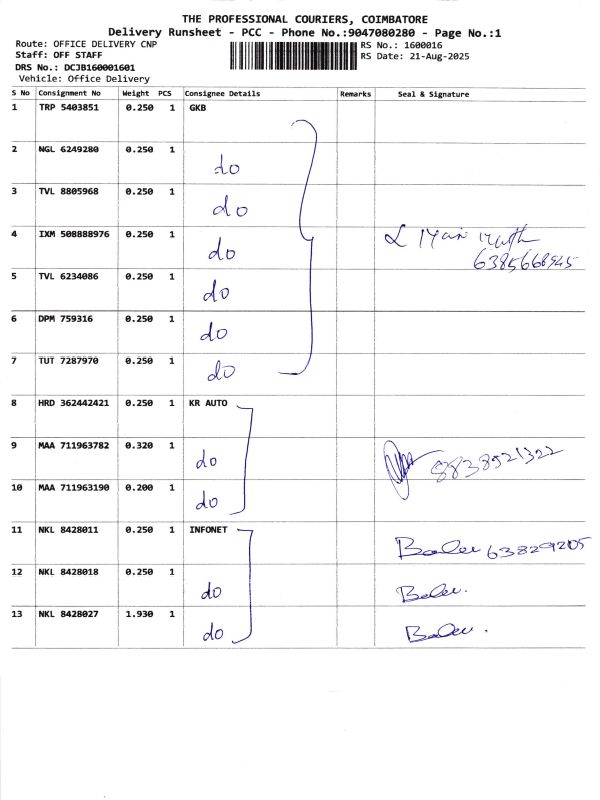 THE PROFESSIONAL COURIERS, COIMBATORE
Delivery Runsheet - PCC - Phone No.:9047080280 - Page No.:1
Route: OFFICE DELIVERY CNP
RS No.: 1600016
Staff: OFF STAFF
RS Date: 21-Aug-2025
DRS No.: DCJB160001601
Vehicle: Office Delivery
S No Consignment No Weight PCS Consignee Details Remarks Seal & Signature
1 TRP 5403851 0.250 1 GKB
2 NGL 6249280 0.250 1
do
3 TVL 8805968 0.250 1
do
4 IXM 508888976 0.250 1
do
6385668945
5 TVL 6234086 0.250 1
do
6 DPM 759316 0.250 1
do
7 TUT 7287970 0.250 1
do
8 HRD 362442421 0.250 1 KR AUTO
9 MAA 711963782 0.320 1
do 8838921322
10 MAA 711963190 0.200 1
do
11 NKL 8428011 0.250 1 INFONET
12 NKL 8428018 0.250 1
do
13 NKL 8428027 1.930 1
do